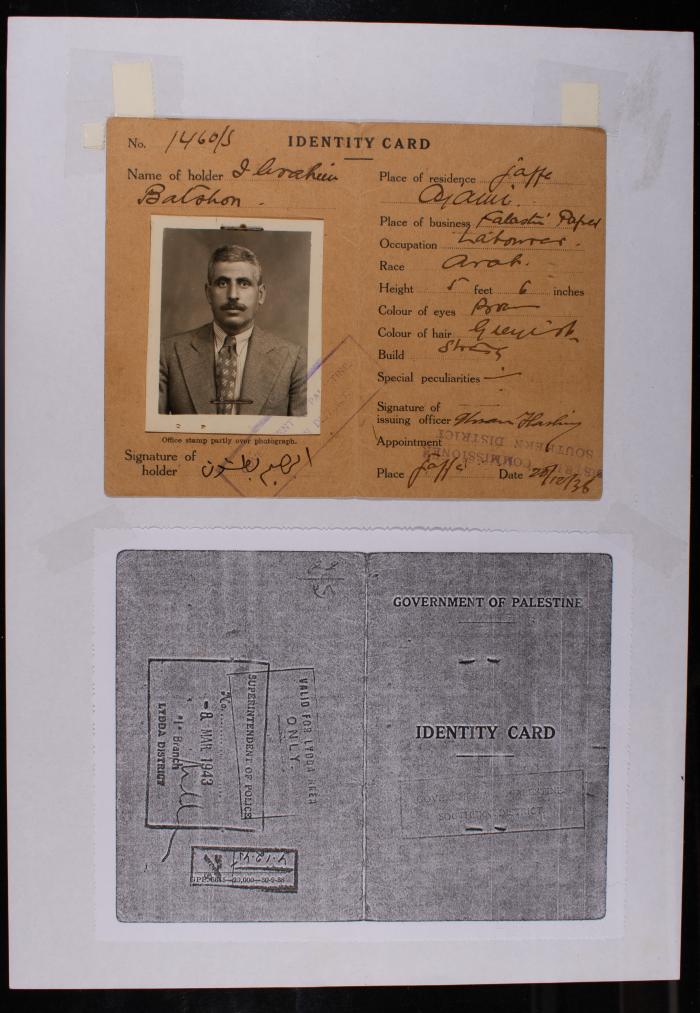 No. 1460/S
IDENTITY CARD
Name of holder Ibrahim
Batshon.
Office stamp partly over photograph.
Signature of
holder ابراهيم بطشون
Place of residence Jaffa
Ajami.
Place of business Falastin Paper
Occupation Labourer.
Race Arab.
Height 5 feet 6 inches
Colour of eyes Brown
Colour of hair Greyish
Build Strong
Special peculiarities
Signature of
issuing officer
Appointment
DISTRICT COMMISSIONER
SOUTHERN DISTRICT
Place Jaffa Date 20/10/36
GOVERNMENT OF PALESTINE
IDENTITY CARD
GOVERNMENT OF PALESTINE
SOUTHERN DISTRICT
VALID FOR LYDDA AREA
ONLY.
SUPERINTENDENT OF POLICE
No.
-8 MAR 1943
LYDDA DISTRICT